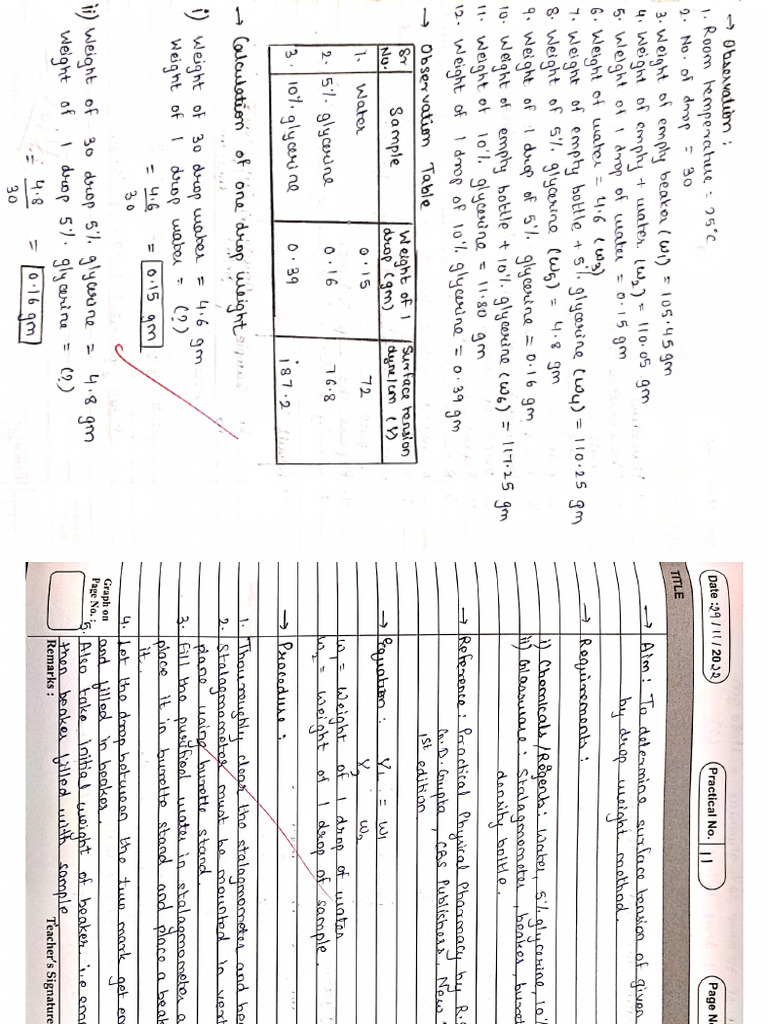 → Observation :
1. Room temperature = 25°C
2. No. of drop = 30
3. Weight of empty beaker (w1) = 105.45 gm
4. Weight of empty + water (w2) = 110.05 gm
5. Weight of 1 drop of water = 0.15 gm
6. Weight of water = 4.6 (w3)
7. Weight of empty bottle + 5% glycerine (w4) = 110.25 gm
8. Weight of 5% glycerine (w5) = 4.8 gm
9. Weight of 1 drop of 5% glycerine = 0.16 gm
10. Weight of empty bottle + 10% glycerine (w6) = 117.25 gm
11. Weight of 10% glycerine = 11.80 gm
12. Weight of 1 drop of 10% glycerine = 0.39 gm
→ Observation Table
Sr No. Sample Weight of 1 drop (gm) Surface tension dyne/cm (γ)
1. Water 0.15 72
2. 5% glycerine 0.16 76.8
3. 10% glycerine 0.39 187.2
→ Calculation of one drop weight
i) Weight of 30 drop water = 4.6 gm
Weight of 1 drop water = (?)
= 4.6/30 = 0.15 gm
ii) Weight of 30 drop 5% glycerine = 4.8 gm
Weight of 1 drop 5% glycerine = (?)
= 4.8/30 = 0.16 gm
Date : 29/11/2022 Practical No. 11 Page N
TITLE
→ Aim : To determine surface tension of given
by drop weight method.
→ Requirements :
i) Chemicals/Regent : Water, 5% glycerine, 10%
ii) Glassware : Stalagmometer, beaker,
density bottle.
→ Reference : Practical Physical Pharmacy by R.
Gupta, CBS Publishers, New
1st edition.
→ Equation : γ1 = w1
γ2 w2
w1 = Weight of 1 drop of water
w2 = Weight of 1 drop of sample.
→ Procedure :
1. Thouroughly clean the stalagmometer and
2. Stalagmometer must be mounted in
plane using burette stand.
3. Fill the purified water in stalagmometer
place it in burette stand and place a
it.
4. Let the drop between the two mark get
and filled in beaker.
5. Also take initial weight of beaker i.e
then beaker filled with sample
Graph on
Page No. :
Remarks :
Teacher's Signature